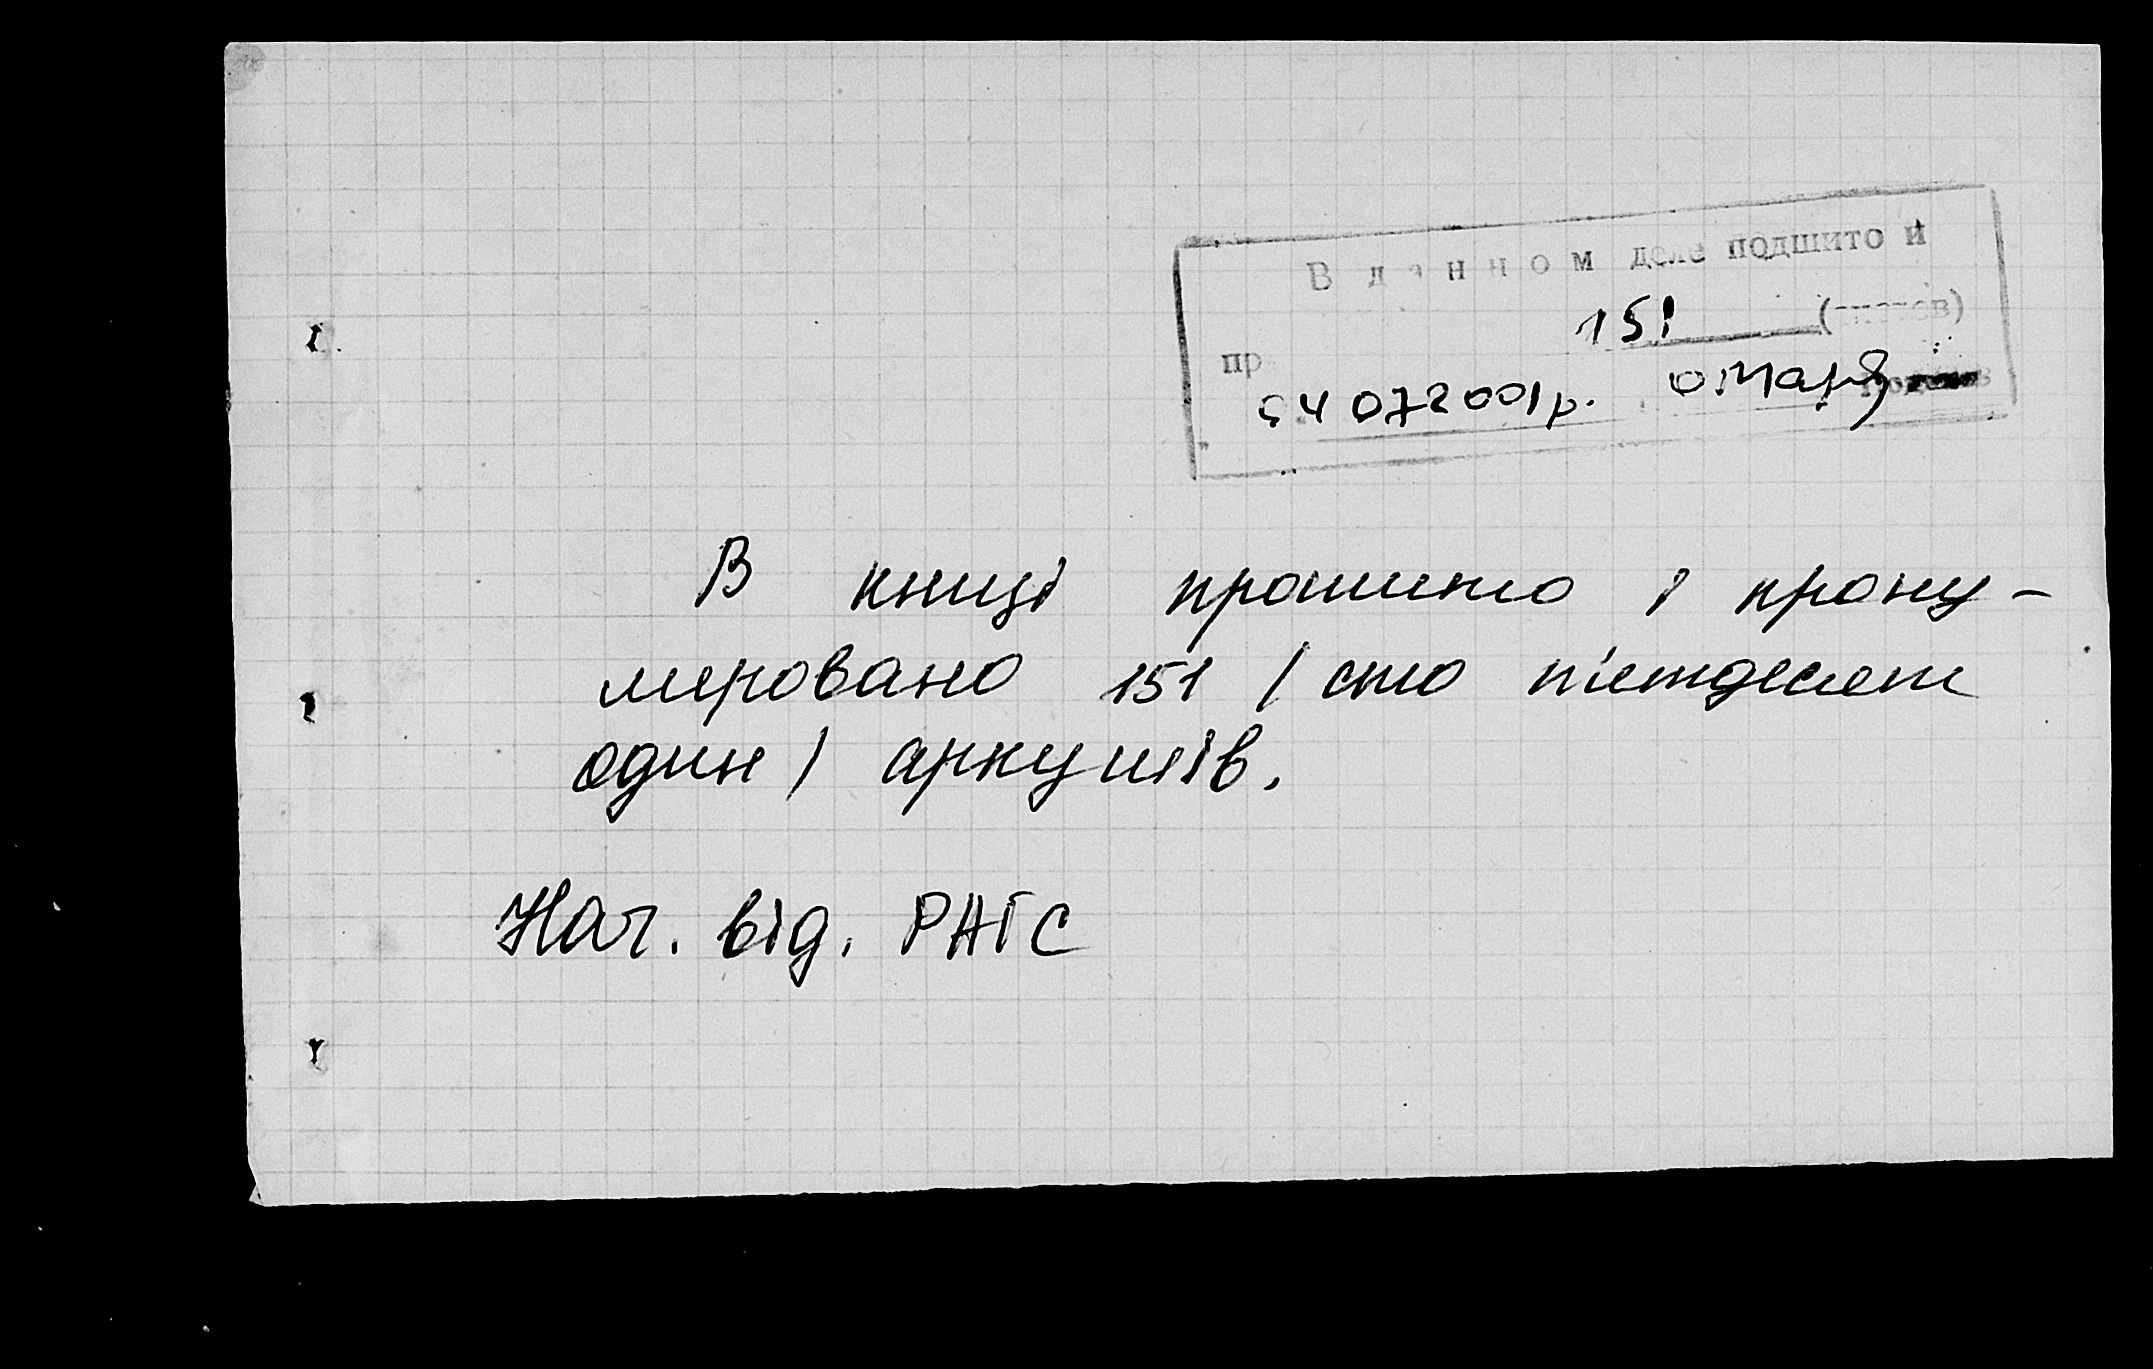 В данном деле подшито и
пр 151 (листов)
В книзі прошито і прону-
меровано 151 /сто п'ятдесят
один/ аркушів.
Нач. від. РАГС